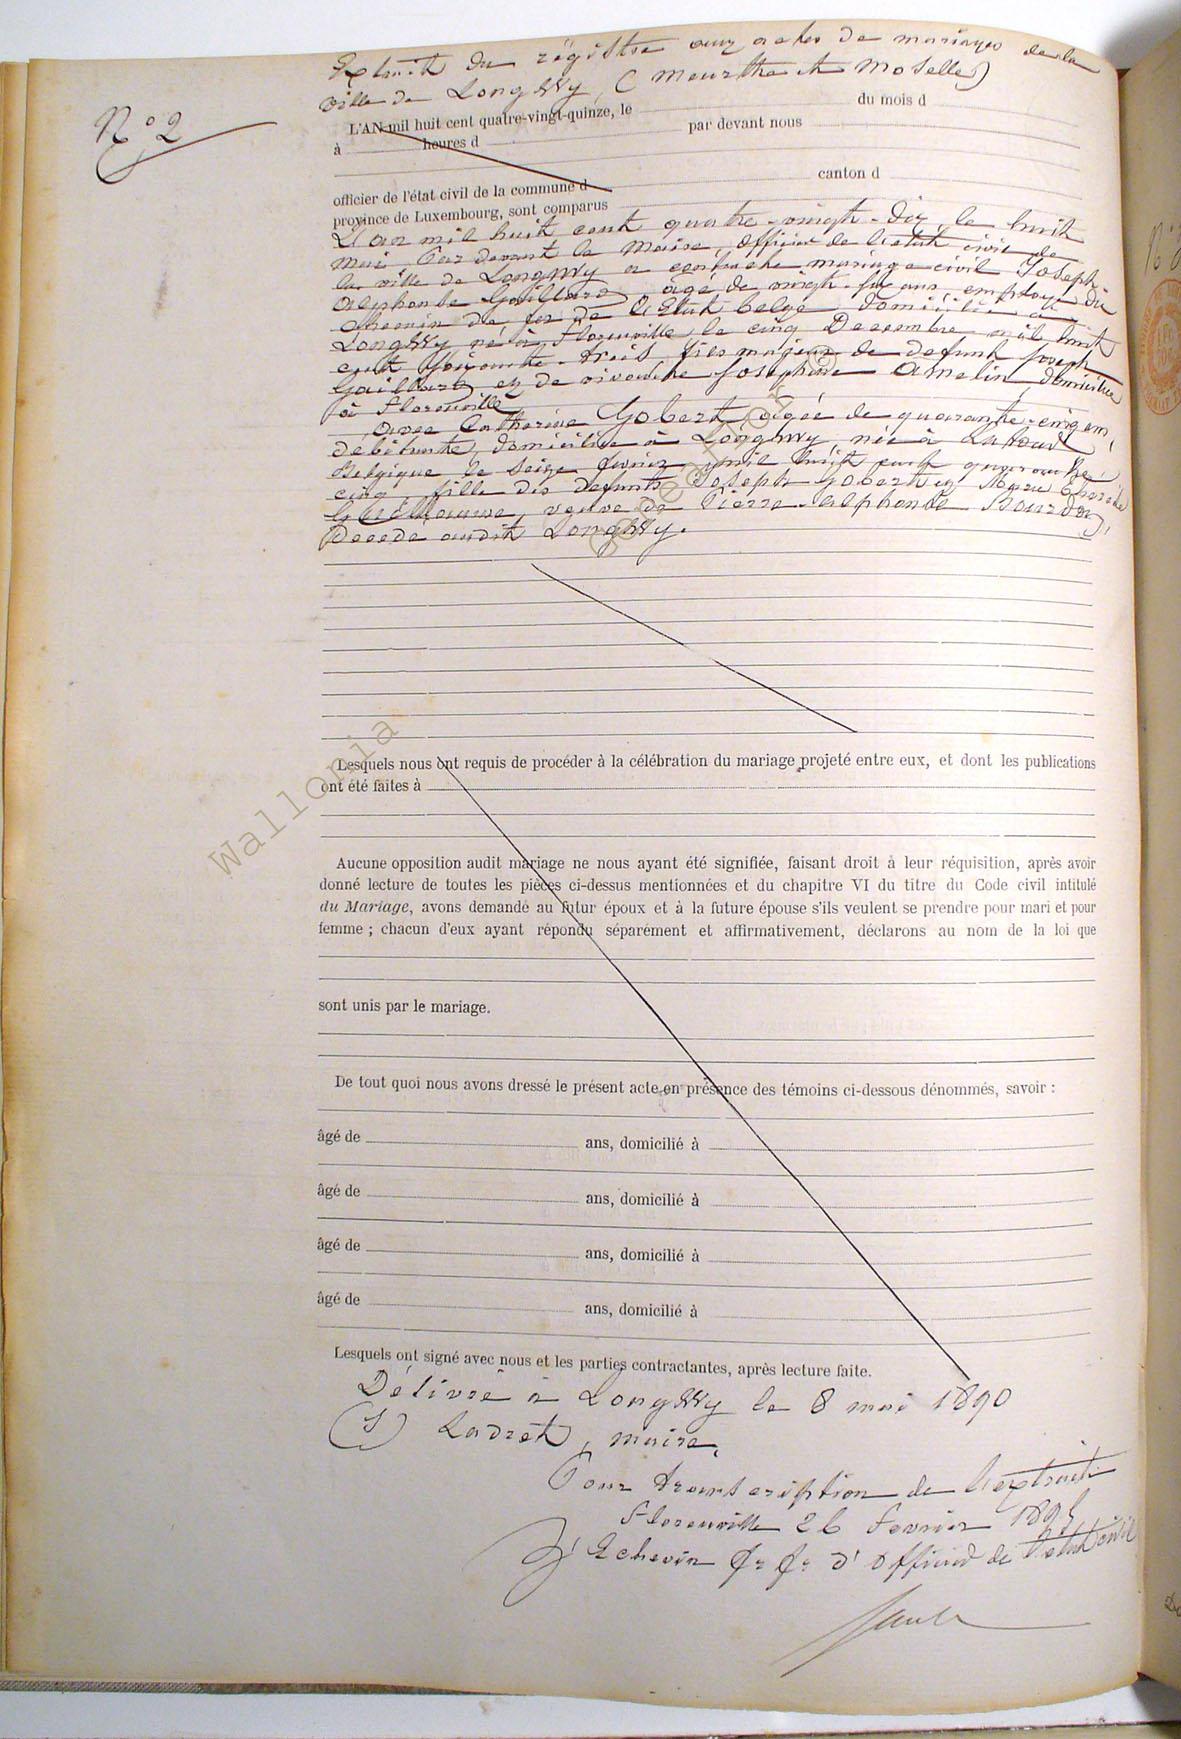 Extrait du régistre aux actes de mariages de la
ville de Longwy, (Meurthe et Moselle)
N° 2
L'AN mil huit cent quatre-vingt-quinze, le du mois d
à heures d par devant nous
officier de l'état civil de la commune d canton d
province de Luxembourg, sont comparus
L'an mil huit cent quatre-vingt-dix, le huit
mai Par devant le Maire, officier de l'état civil de
la ville de Longwy a contracté mariage civil Joseph
Alphonse Gaillard, âgé de vingt-six ans employé du
chemin de fer de l'Etat belge, domicilié à
Longwy né à Florenville le cinq Décembre mil huit
cent soixante-trois, fils majeur de défunt Joseph
Gaillard et de vivante Joséphine Amelin domiciliée
à Florenville
avec Catherine Gobert âgée de quarante-cinq ans,
débitante, domiciliée à Longwy, née à
Belgique le seize février mil huit cent quarante
cinq, fille des défunts Joseph Gobert et Marie
veuve de Pierre Alphonse
décédé audit Longwy.
Lesquels nous ont requis de procéder à la célébration du mariage projeté entre eux, et dont les publications
ont été faites à
Aucune opposition audit mariage ne nous ayant été signifiée, faisant droit à leur réquisition, après avoir
donné lecture de toutes les pièces ci-dessus mentionnées et du chapitre VI du titre du Code civil intitulé
du Mariage, avons demandé au futur époux et à la future épouse s'ils veulent se prendre pour mari et pour
femme ; chacun d'eux ayant répondu séparément et affirmativement, déclarons au nom de la loi que
sont unis par le mariage.
De tout quoi nous avons dressé le présent acte en présence des témoins ci-dessous dénommés, savoir :
âgé de ans, domicilié à
âgé de ans, domicilié à
âgé de ans, domicilié à
âgé de ans, domicilié à
Lesquels ont signé avec nous et les parties contractantes, après lecture faite.
Délivré à Longwy le 8 mai 1890
(S) Ladret, maire,
Pour transcription de l'extrait
Florenville 26 février 1895
L'Echevin f. f. d'officier de l'état civil
Wallonia